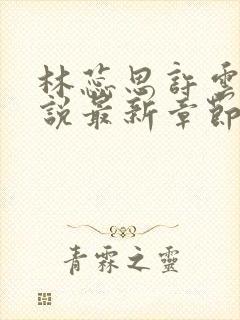 林蕊思許雲
說最新章節
青霖之靈